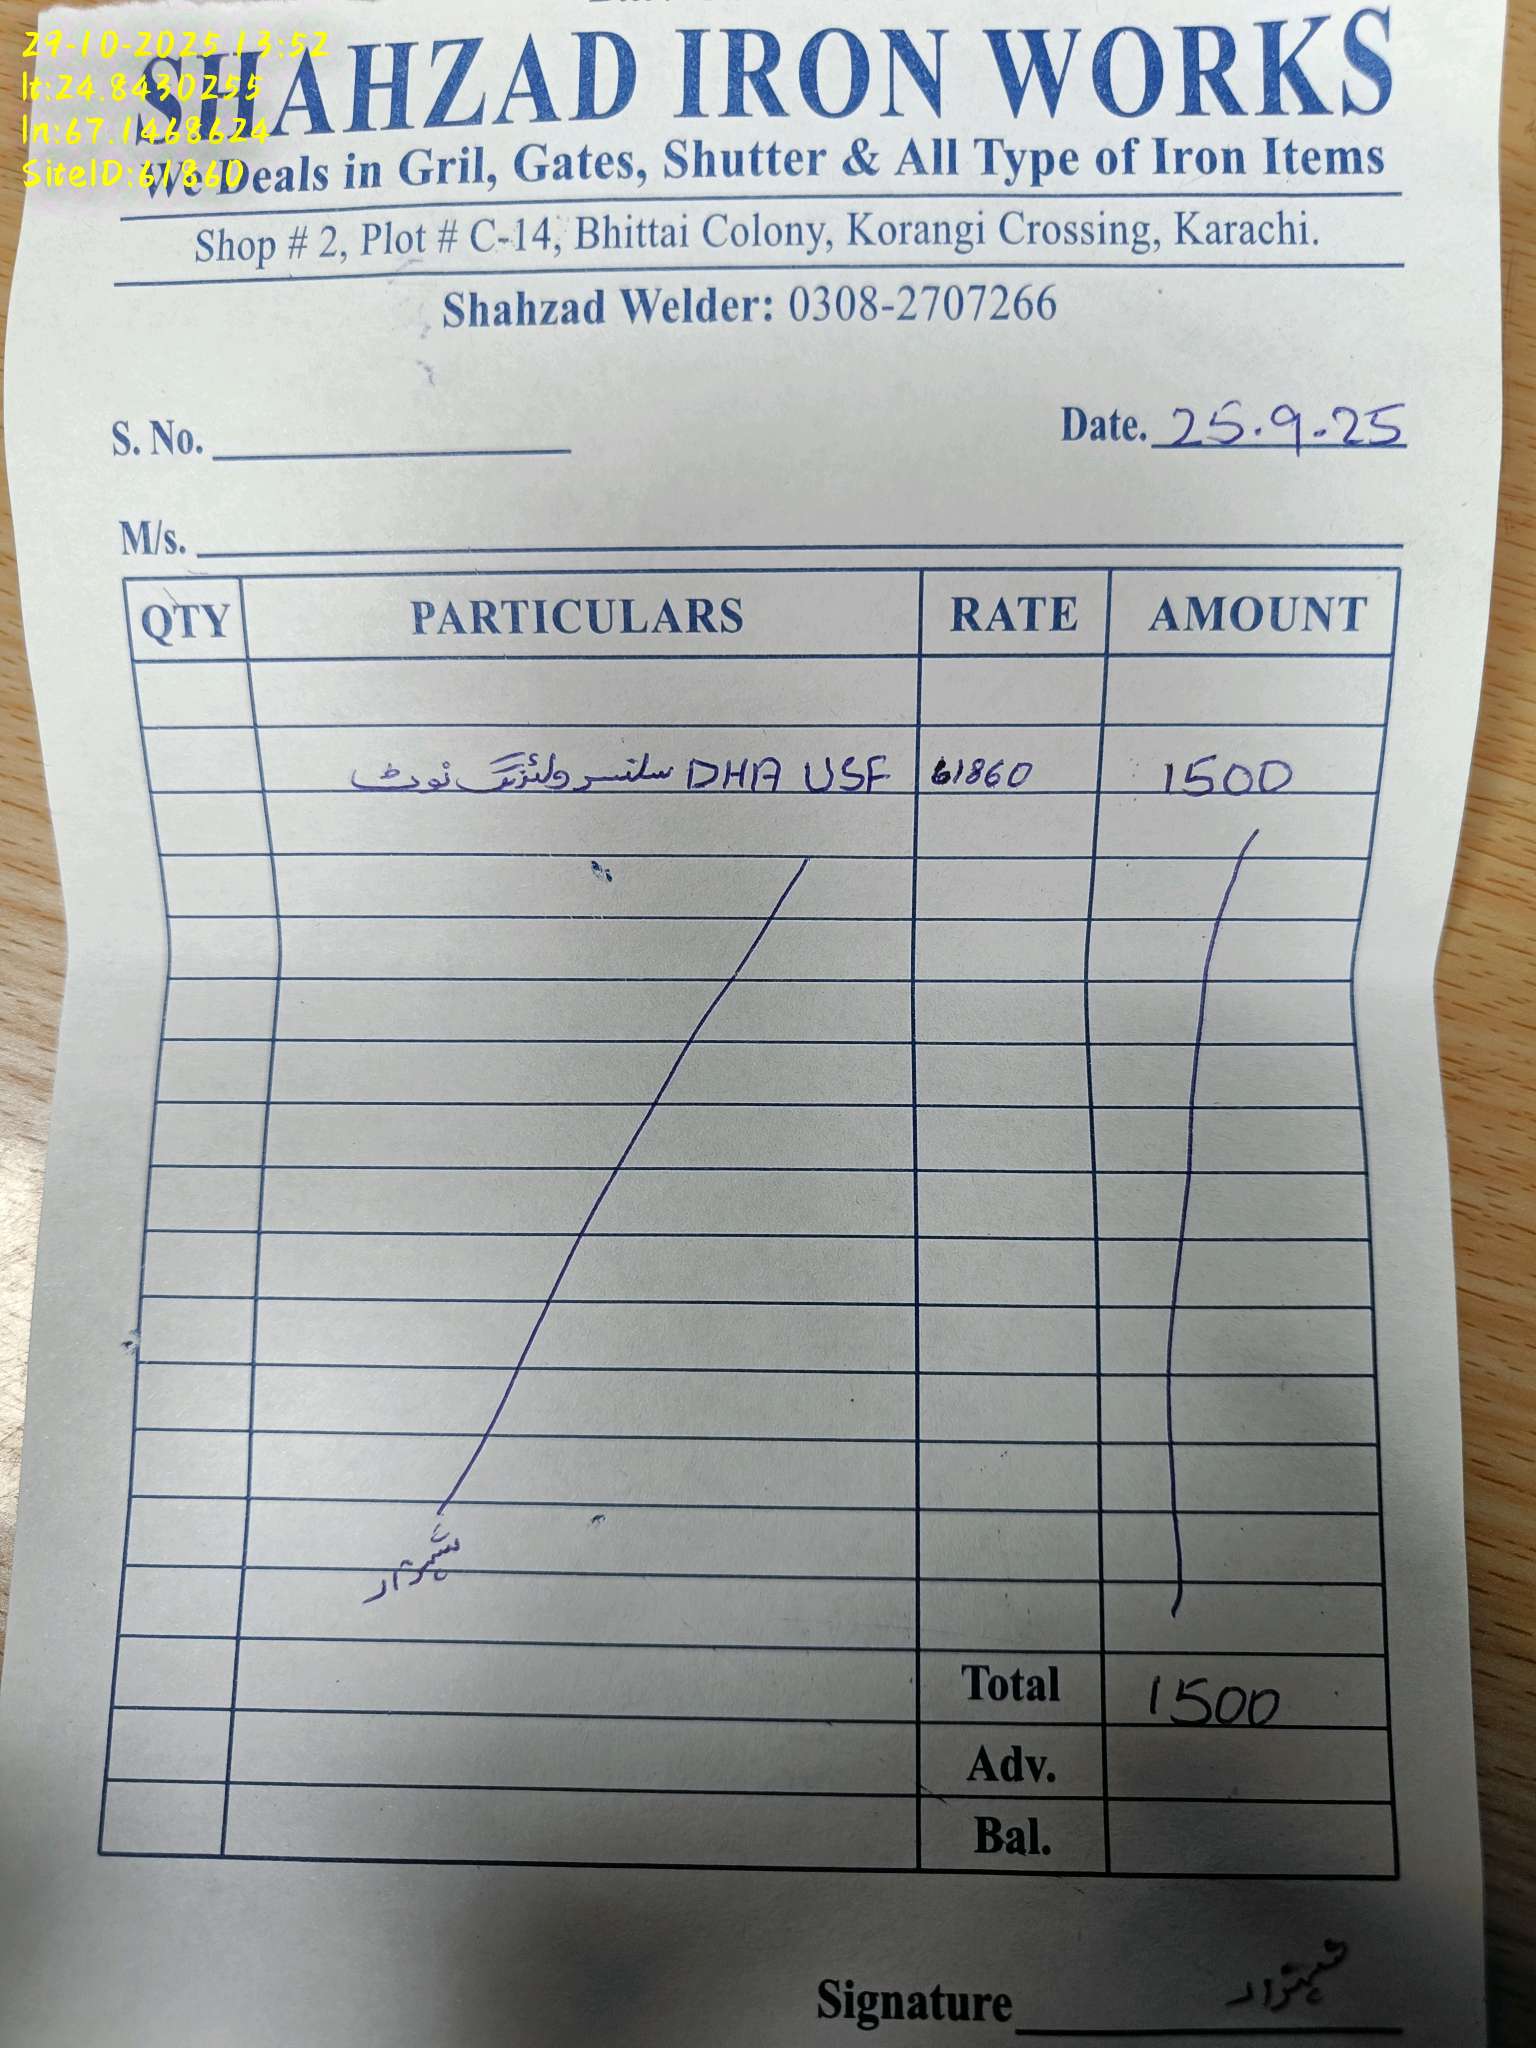 29-10-2025 13:52
lt:24.8430255
ln:67.1468624
SiteID:61860
SHAHZAD IRON WORKS
We Deals in Gril, Gates, Shutter & All Type of Iron Items
Shop # 2, Plot # C-14, Bhittai Colony, Korangi Crossing, Karachi.
Shahzad Welder: 0308-2707266
S. No. Date. 25.9.25
M/s.
QTY PARTICULARS RATE AMOUNT
DHA USF سلنسر ولڈنگ 61860 1500
شہزاد
Total 1500
Adv.
Bal.
Signature شہزاد